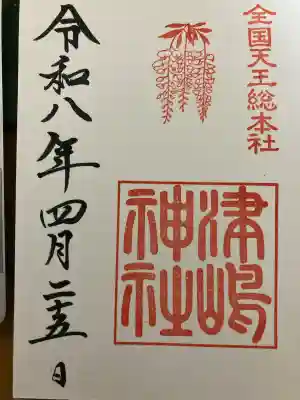 全国天王総本社
津嶋
神社
令和八年四月二十五日